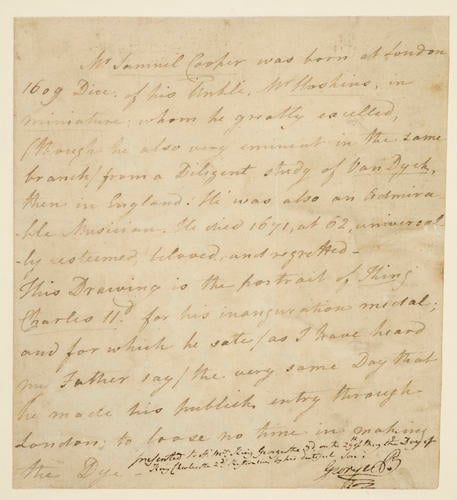 Mr Samuel Cooper was born at London
1609 Disc. of his Unkle, Mr Hoskins, in
miniature; whom he greatly excelled,
(though he also very eminent in the same
branch) from a Diligent study of Van Dyck,
then in England: He was also an Admira-
-ble Musician. He died 1671, at 62, universal-
-ly esteemed, beloved, and regretted -
This Drawing is the portrait of King
Charles IId for his inauguration medal;
and for which he sate (as I have heard
my Father say) the very same Day that
he made his publick entry through
London; to loose no time in making
the Dye
presented to H. My King George the 3d on the 29th May the Day of
King Charles the 2d Restoration by his dutiful Son:
George P